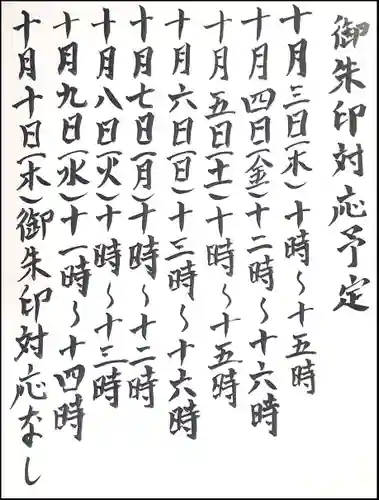 御朱印対応予定
十月三日(木)十時~十五時
十月四日(金)十二時~十六時
十月五日(土)十時~十五時
十月六日(日)十三時~十六時
十月七日(月)十時~十二時
十月八日(火)十時~十三時
十月九日(水)十一時~十四時
十月十日(木)御朱印対応なし